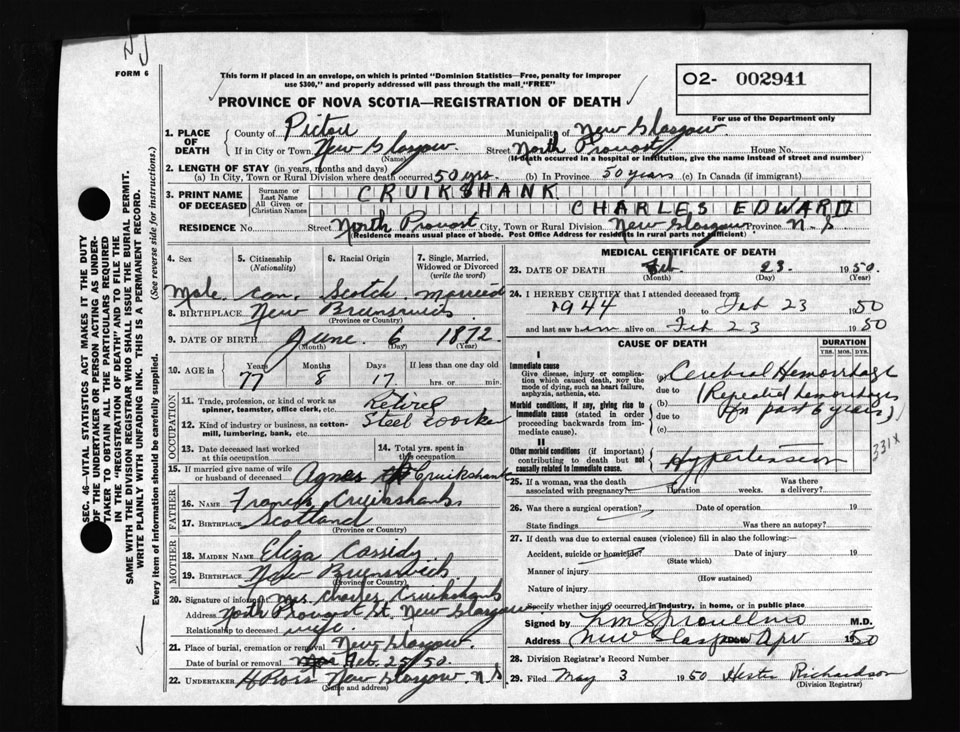 FORM 6
This form if placed in an envelope, on which is printed "Dominion Statistics—Free, penalty for improper
use $300," and properly addressed will pass through the mail "FREE"
02- 002941
For use of the Department only
PROVINCE OF NOVA SCOTIA—REGISTRATION OF DEATH
1. PLACE OF DEATH County of Pictou Municipality of New Glasgow
If in City or Town New Glasgow (Name) Street North Provost House No.
(If death occurred in a hospital or institution, give the name instead of street and number)
2. LENGTH OF STAY (in years, months and days)
(a) In City, Town or Rural Division where death occurred 50 yrs. (b) In Province 50 years (c) In Canada (if immigrant)
3. PRINT NAME OF DECEASED Surname or Last Name CRUIKSHANK
All Given or Christian Names CHARLES EDWARD
RESIDENCE No. Street North Provost City, Town or Rural Division New Glasgow Province N S
(Residence means usual place of abode. Post Office Address for residents in rural parts not sufficient)
4. Sex 5. Citizenship (Nationality) 6. Racial Origin 7. Single, Married, Widowed or Divorced (write the word)
Male Can. Scotch Married
8. BIRTHPLACE New Brunswick
(Province or Country)
9. DATE OF BIRTH June 6 1872
(Month) (Day) (Year)
10. AGE in Years Months Days If less than one day old
77 8 17 hrs. or min.
OCCUPATION
11. Trade, profession, or kind of work as spinner, teamster, office clerk, etc. Retired
12. Kind of industry or business, as cotton-mill, lumbering, bank, etc. Steel worker
13. Date deceased last worked at this occupation 14. Total yrs. spent in this occupation
15. If married give name of wife or husband of deceased Agnes Cruikshank
FATHER
16. NAME Francis Cruikshank
17. BIRTHPLACE Scotland
(Province or Country)
MOTHER
18. MAIDEN NAME Eliza Cassidy
19. BIRTHPLACE New Brunswick
(Province or Country)
20. Signature of informant Mrs. Charles Cruikshank
Address North Provost St. New Glasgow
Relationship to deceased wife
21. Place of burial, cremation or removal New Glasgow.
Date of burial or removal Feb. 25/50.
22. UNDERTAKER H Ross New Glasgow, N.S
(Name and address)
MEDICAL CERTIFICATE OF DEATH
23. DATE OF DEATH Feb 23 1950.
(Month) (Day) (Year)
24. I HEREBY CERTIFY that I attended deceased from
1944 19 to Feb 23 1950
and last saw him alive on Feb 23 1950
CAUSE OF DEATH DURATION
YRS. MOS. DYS.
I
Immediate cause
Give disease, injury or complication which caused death, NOT the mode of dying, such as heart failure, asphyxia, asthenia, etc.
(a) Cerebral Hemorrhage
due to
Morbid conditions, if any, giving rise to immediate cause (stated in order proceeding backwards from immediate cause).
(b) (Repeated hemorrhages
due to
(c) in past 6 years)
II
Other morbid conditions (if important) contributing to death but not causally related to immediate cause.
Hypertension
331X
25. If a woman, was the death associated with pregnancy? Duration weeks. Was there a delivery?
26. Was there a surgical operation? Date of operation 19
State findings Was there an autopsy?
27. If death was due to external causes (violence) fill in also the following:
Accident, suicide or homicide? Date of injury 19
(State which)
Manner of injury
(How sustained)
Nature of injury
Specify whether injury occurred in industry, in home, or in public place
Signed by M.D.
Address New Glasgow Date Apr 1950
28. Division Registrar's Record Number
29. Filed May 3 1950 Hester Richardson
(Division Registrar)
SEC. 46—VITAL STATISTICS ACT MAKES IT THE DUTY
OF THE UNDERTAKER OR PERSON ACTING AS UNDER-
TAKER TO OBTAIN ALL THE PARTICULARS REQUIRED
IN THE "REGISTRATION OF DEATH" AND TO FILE THE
SAME WITH THE DIVISION REGISTRAR WHO SHALL ISSUE THE BURIAL PERMIT.
WRITE PLAINLY WITH UNFADING INK. THIS IS A PERMANENT RECORD.
Every item of information should be carefully supplied. (See reverse side for instructions.)